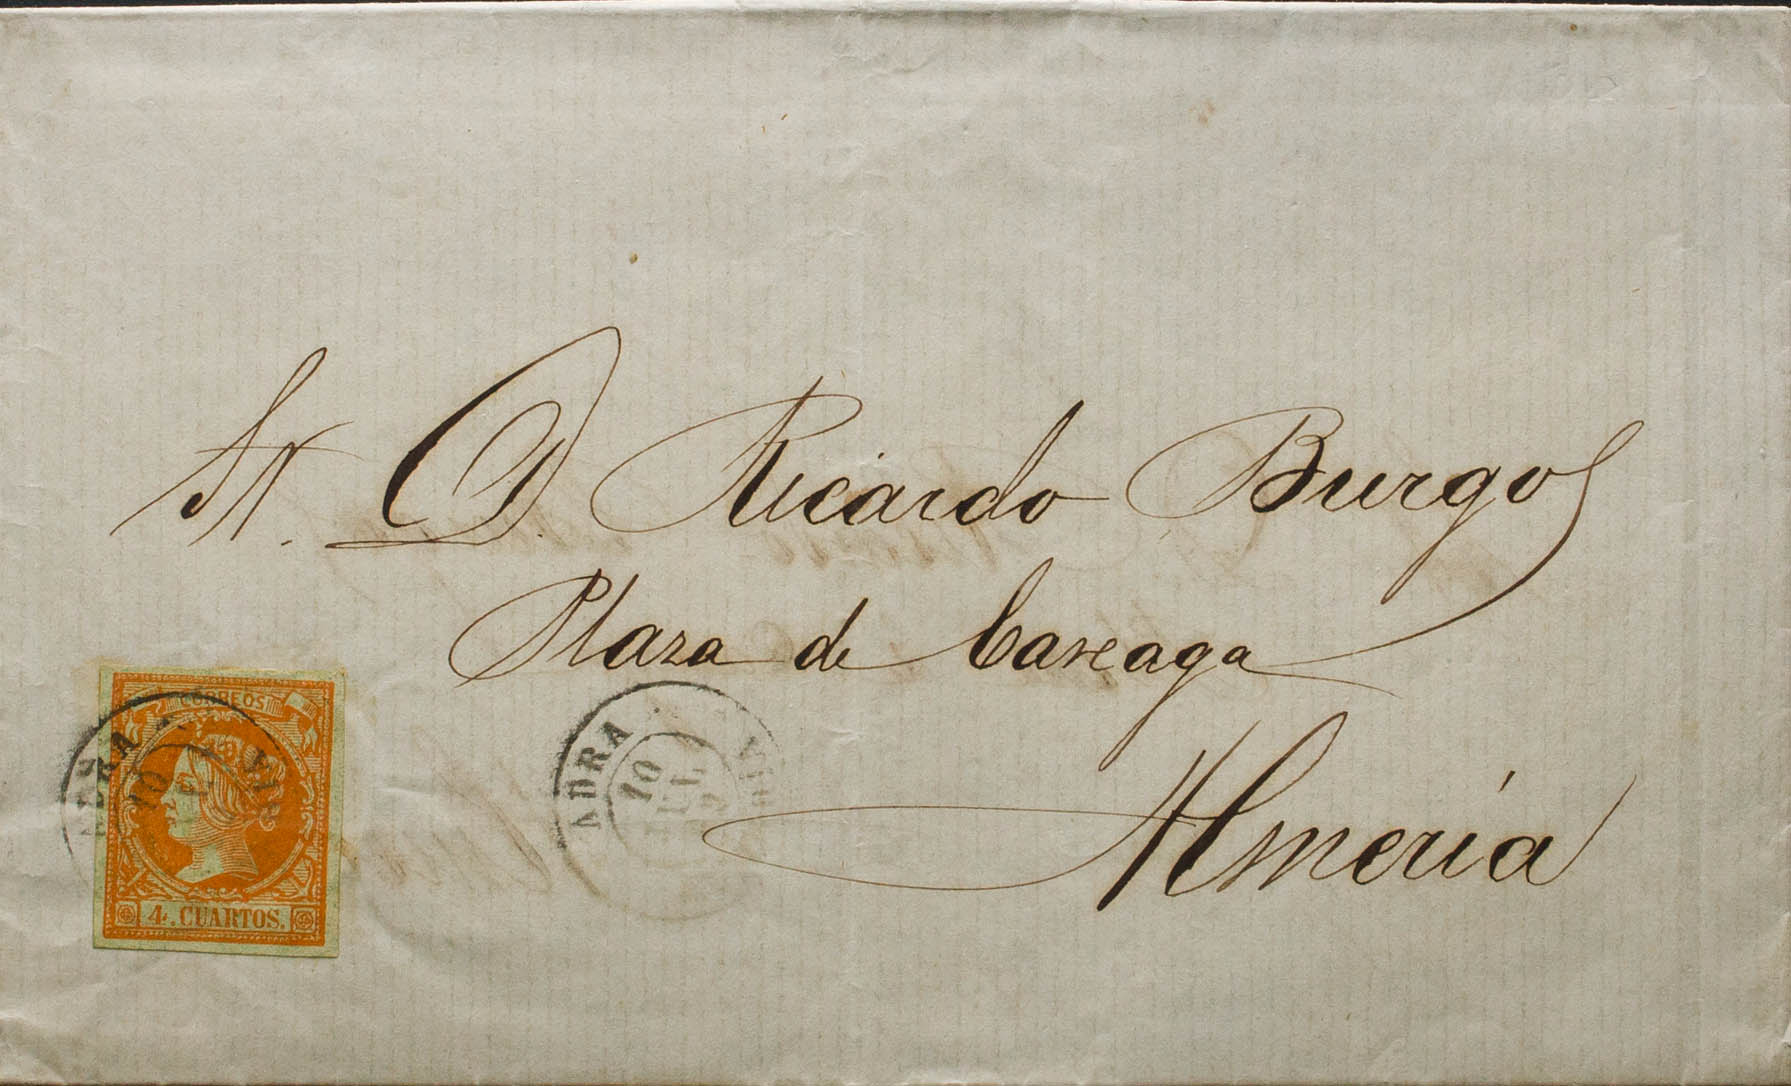 Sr. D. Ricardo Burgos
Plaza de Careaga
Almeria
CORREOS
4. CUARTOS.
ADRA
10
ADRA
10